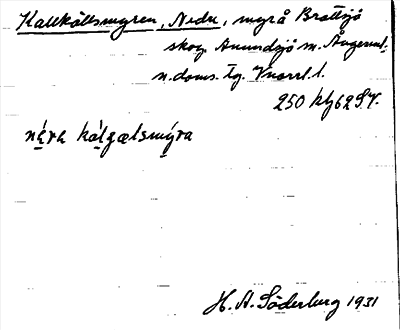 Kallkällsmyren, Nedre, myrå Brattsjö
skog Anundsjö sn. Ångerml.
n. doms. tg. Vnorrl. l.
250 kbl 62 S.V.
nára kálgælsmýra
H. A. Söderberg 1931